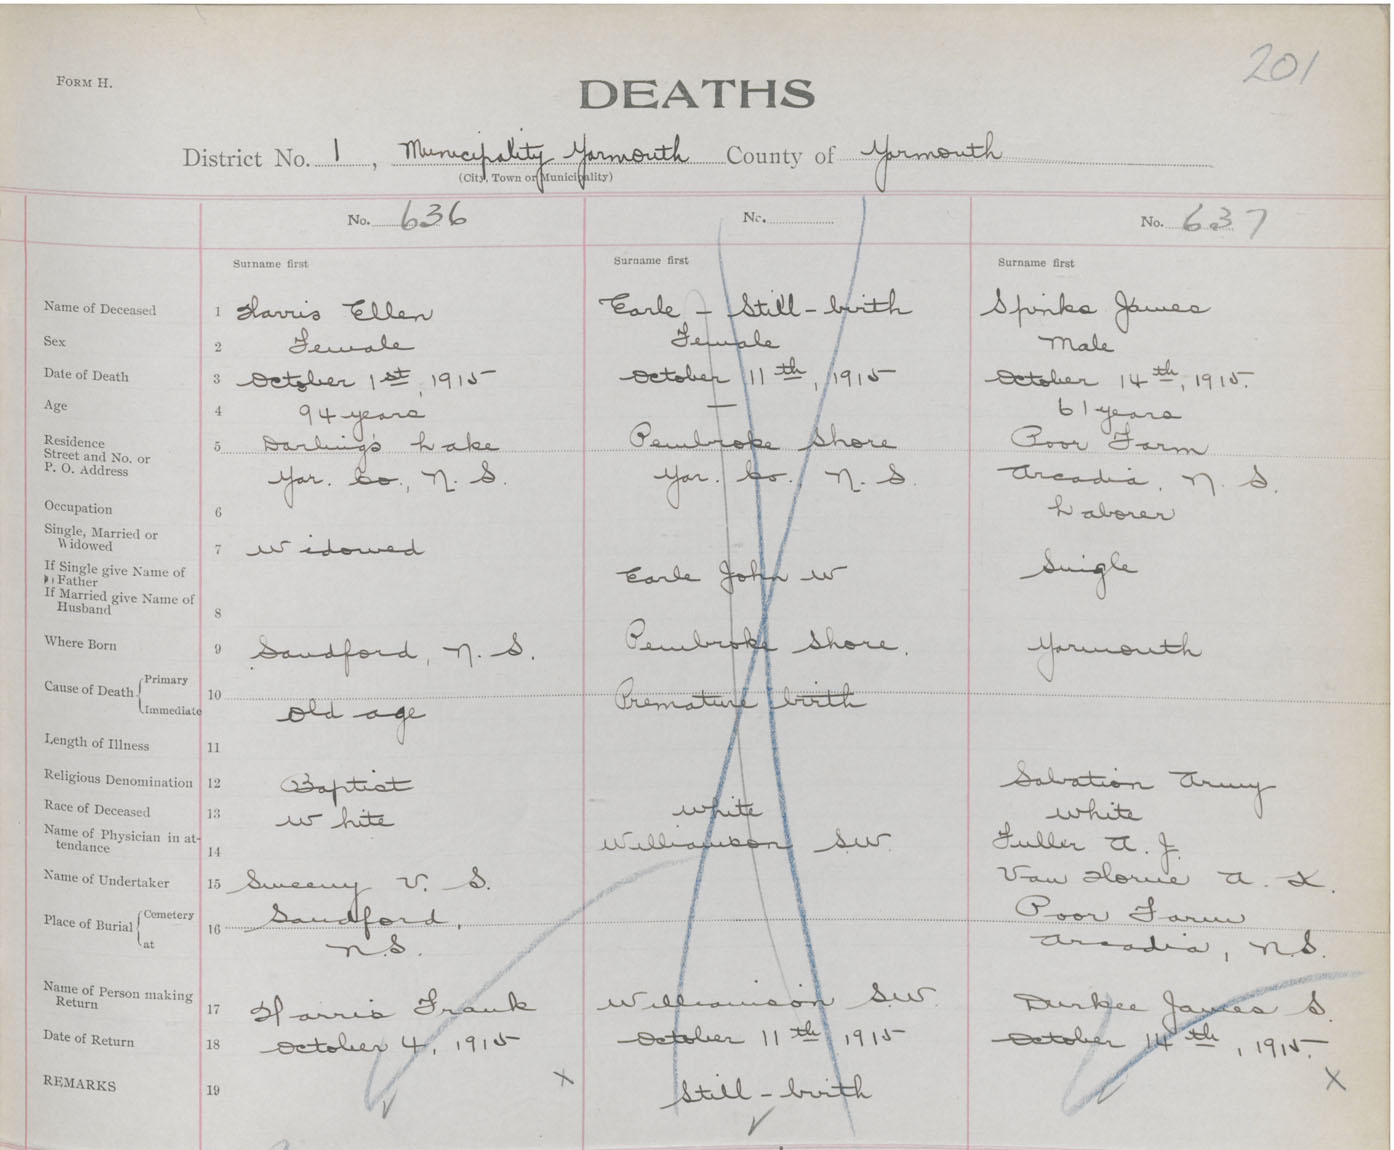 201
FORM H.
DEATHS
District No. 1, Municipality Yarmouth County of Yarmouth
(City, Town or Municipality)
No. 636 No. No. 637
Surname first Surname first Surname first
Name of Deceased 1 Harris Ellen Earle - Still-birth Spinks James
Sex 2 Female Female Male
Date of Death 3 October 1st, 1915 October 11th, 1915 October 14th, 1915.
Age 4 94 years — 61 years
Residence 5 Darling's Lake Pembroke Shore Poor Farm
Street and No. or
P. O. Address Yar. Co., N. S. Yar. Co. N. S. Arcadia, N. S.
Occupation 6 Laborer
Single, Married or
Widowed 7 Widowed Single
If Single give Name of
Father Earle John W
If Married give Name of
Husband 8
Where Born 9 Sandford, N. S. Pembroke Shore. Yarmouth
Cause of Death Primary 10 Premature birth
Immediate Old age
Length of Illness 11
Religious Denomination 12 Baptist Salvation Army
Race of Deceased 13 White White White
Name of Physician in at-
tendance 14 Williamson S.W. Fuller A. J.
Name of Undertaker 15 Sweeny V. S. Van Horne A. K.
Place of Burial Cemetery 16 Sandford, Poor Farm
at N.S. Arcadia, N.S.
Name of Person making
Return 17 Harris Frank Williamson S.W. Durkee James S.
Date of Return 18 October 4, 1915 October 11th, 1915 October 14th, 1915.
REMARKS 19 X Still-birth X